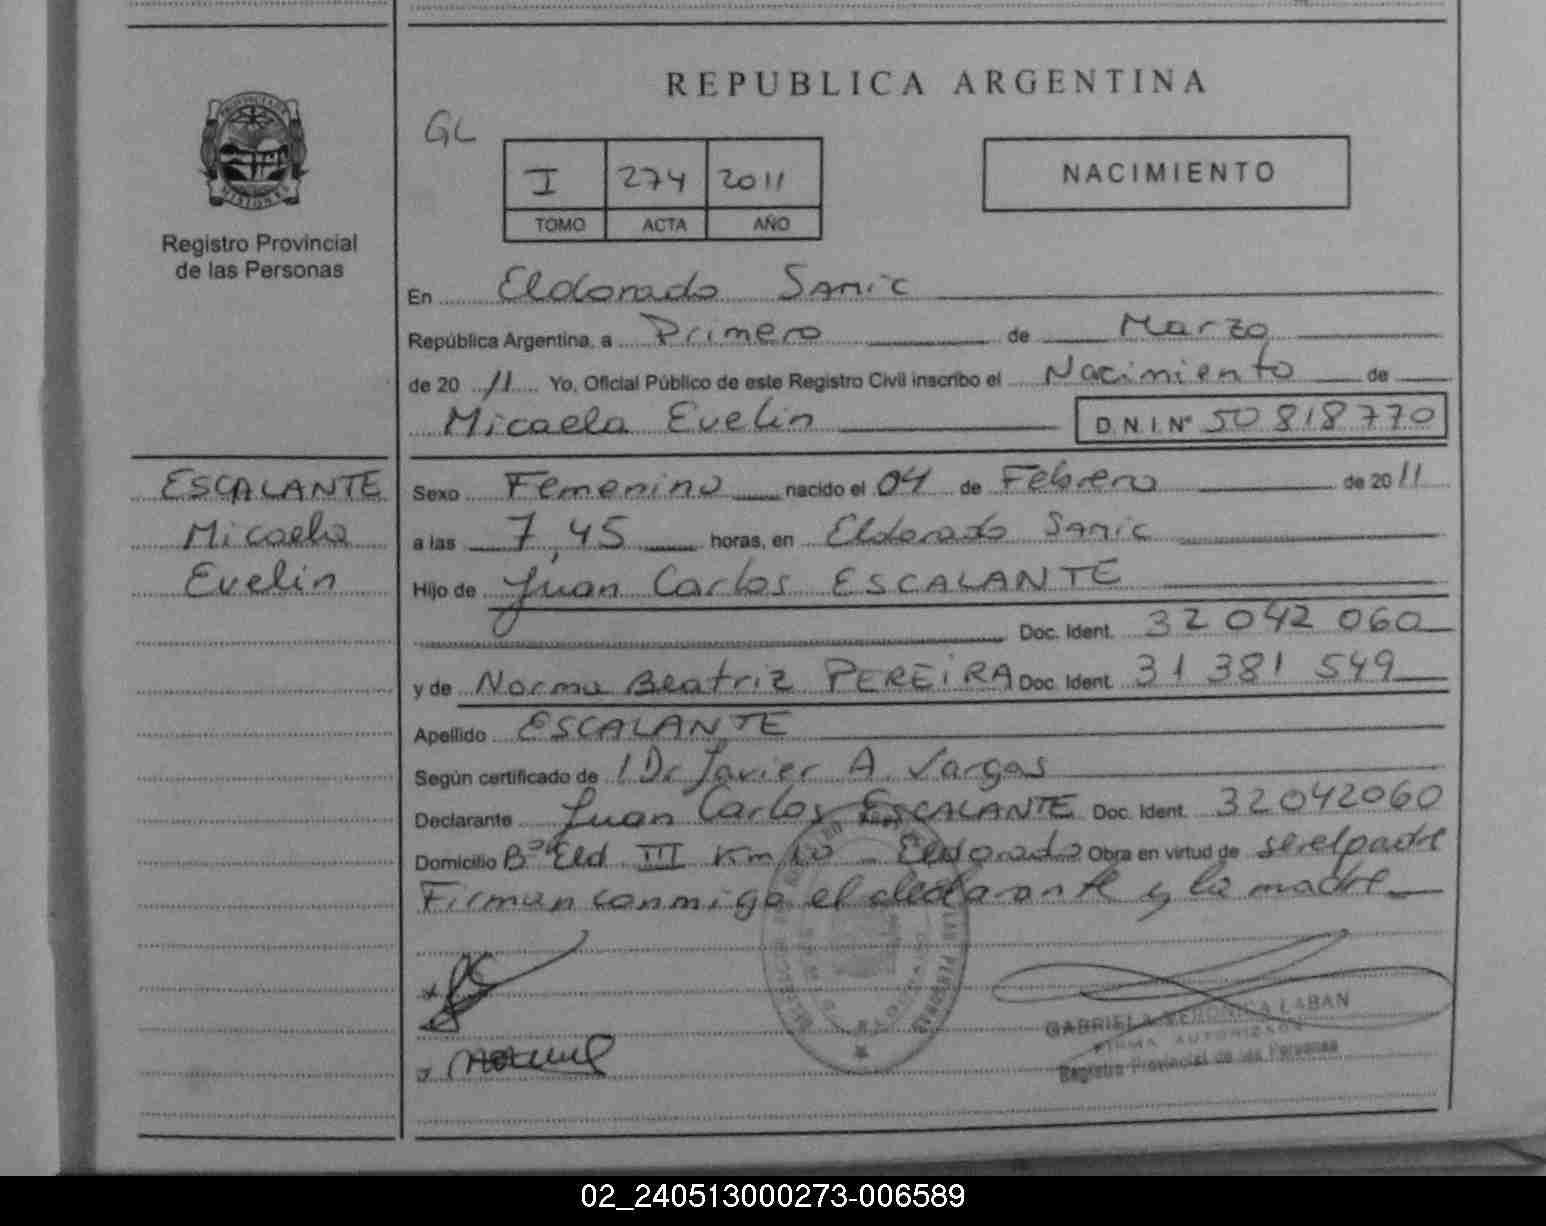 REPUBLICA ARGENTINA
GL
I 274 2011
TOMO ACTA AÑO
NACIMIENTO
Registro Provincial
de las Personas
En Eldorado Samic
República Argentina, a Primero de Marzo
de 20 11 Yo, Oficial Público de este Registro Civil inscribo el Nacimiento de
Micaela Evelin D.N.I.Nº 50 818 770
ESCALANTE
Micaela
Evelin
Sexo Femenino nacido el 04 de Febrero de 2011
a las 7,45 horas, en Eldorado Samic
Hijo de Juan Carlos ESCALANTE
Doc. Ident. 32 042 060
y de Norma Beatriz PEREIRA Doc. Ident. 31 381 549
Apellido ESCALANTE
Según certificado de 1 Dr Javier A. Vargas
Declarante Juan Carlos ESCALANTE Doc. Ident. 32042060
Domicilio Bº Eld III Km 10 - Eldorado Obra en virtud de ser el padre
Firman conmigo el declarante y la madre
GABRIELA VERONICA LABAN
FIRMA AUTORIZADA
Registro Provincial de las Personas
02_240513000273-006589